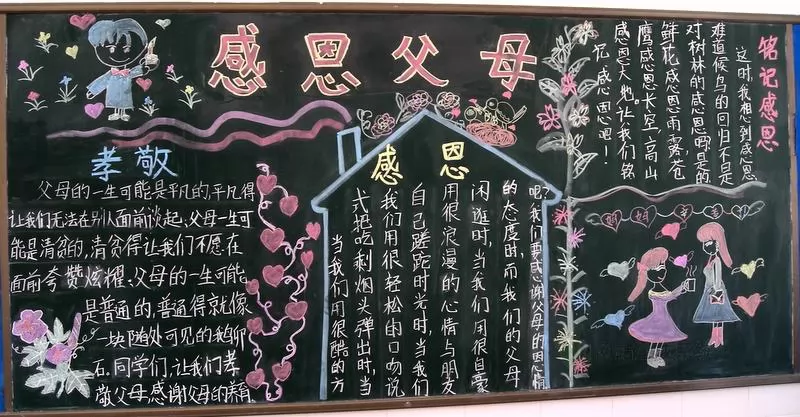 感恩父母
孝敬
父母的一生可能是平凡的,平凡得
让我们无法在别人面前谈起;父母一生可
能是清贫的,清贫得让我们不愿在
面前夸赞炫耀;父母的一生可能
是普通的,普通得就像
一块随处可见的鹅卵
石.同学们,让我们孝
敬父母,感谢父母的养育.
感恩
当我们用很酷的方
式把吃剩烟头弹出时,当
我们用很轻松的口吻说
自己蹉跎时光时,当我们
用很浪漫的心情与朋友
闲逛时,当我们用很自豪
的态度时,而我们的父母
呢?我们要感谢父母的恩情
铭记感恩
这时,我想到感恩
难道候鸟的回归不是
对树林的感恩吗?是的
鲜花感恩雨露,苍
鹰感恩长空,高山
感恩大地,让我们铭
记感恩吧!
妈妈辛苦了